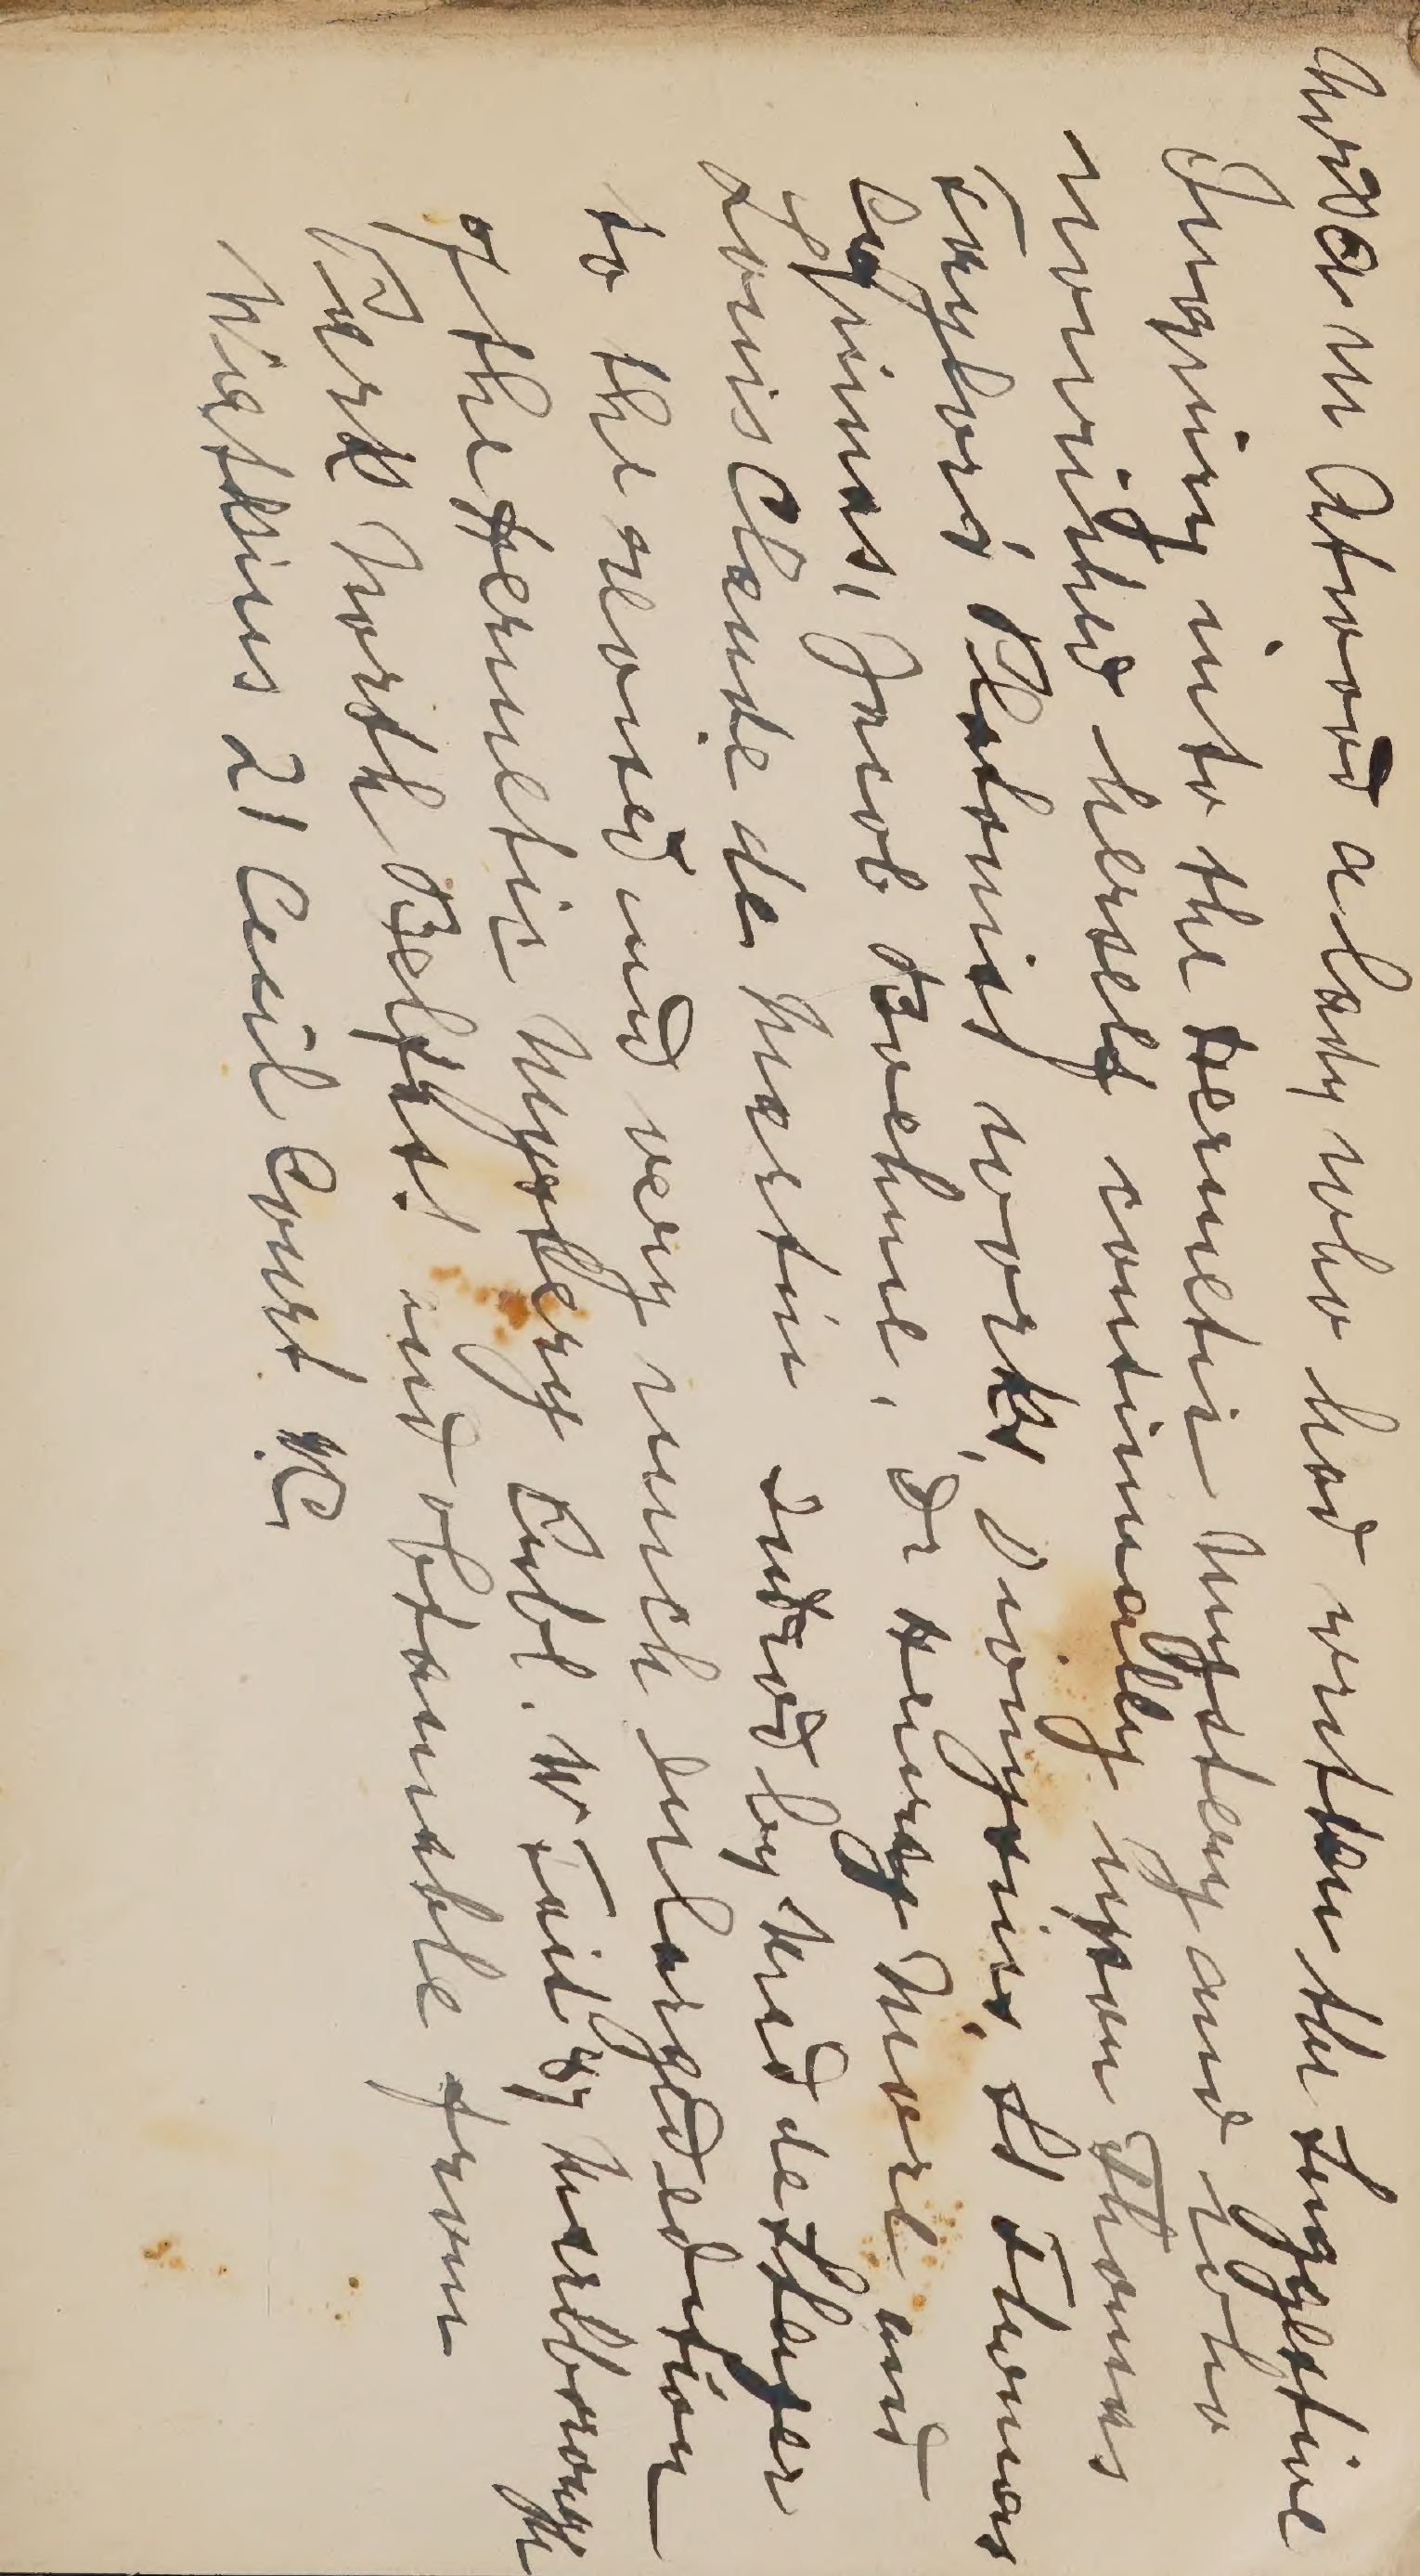 Madam Atwood a lady who had written the Suggestive
Inquiry into the Hermetic Mystery and who
nourished herself continually upon Thomas
Taylors Platonist works, Dionysius, St Thomas
Aquinas, Jacob Boehme, Dr Henry More and
Louis Claude de Martin
to the revised and very much Enlarged edition
of the Hermetic Mystery Publ. W Tait by Marlborough
Park North Belfast. and obtainable from
Watkins 21 Cecil Court WC